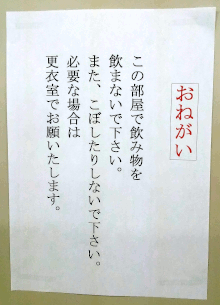 おねがい
この部屋で飲み物を
飲まないで下さい。
また、こぼしたりしないで下さい。
必要な場合は
更衣室でお願いたします。